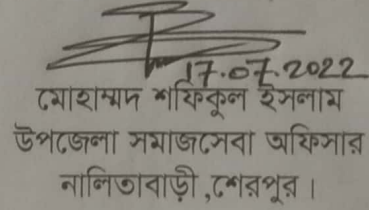 17.07.2022
মোহাম্মদ শফিকুল ইসলাম
উপজেলা সমাজসেবা অফিসার
নালিতাবাড়ী,শেরপুর।